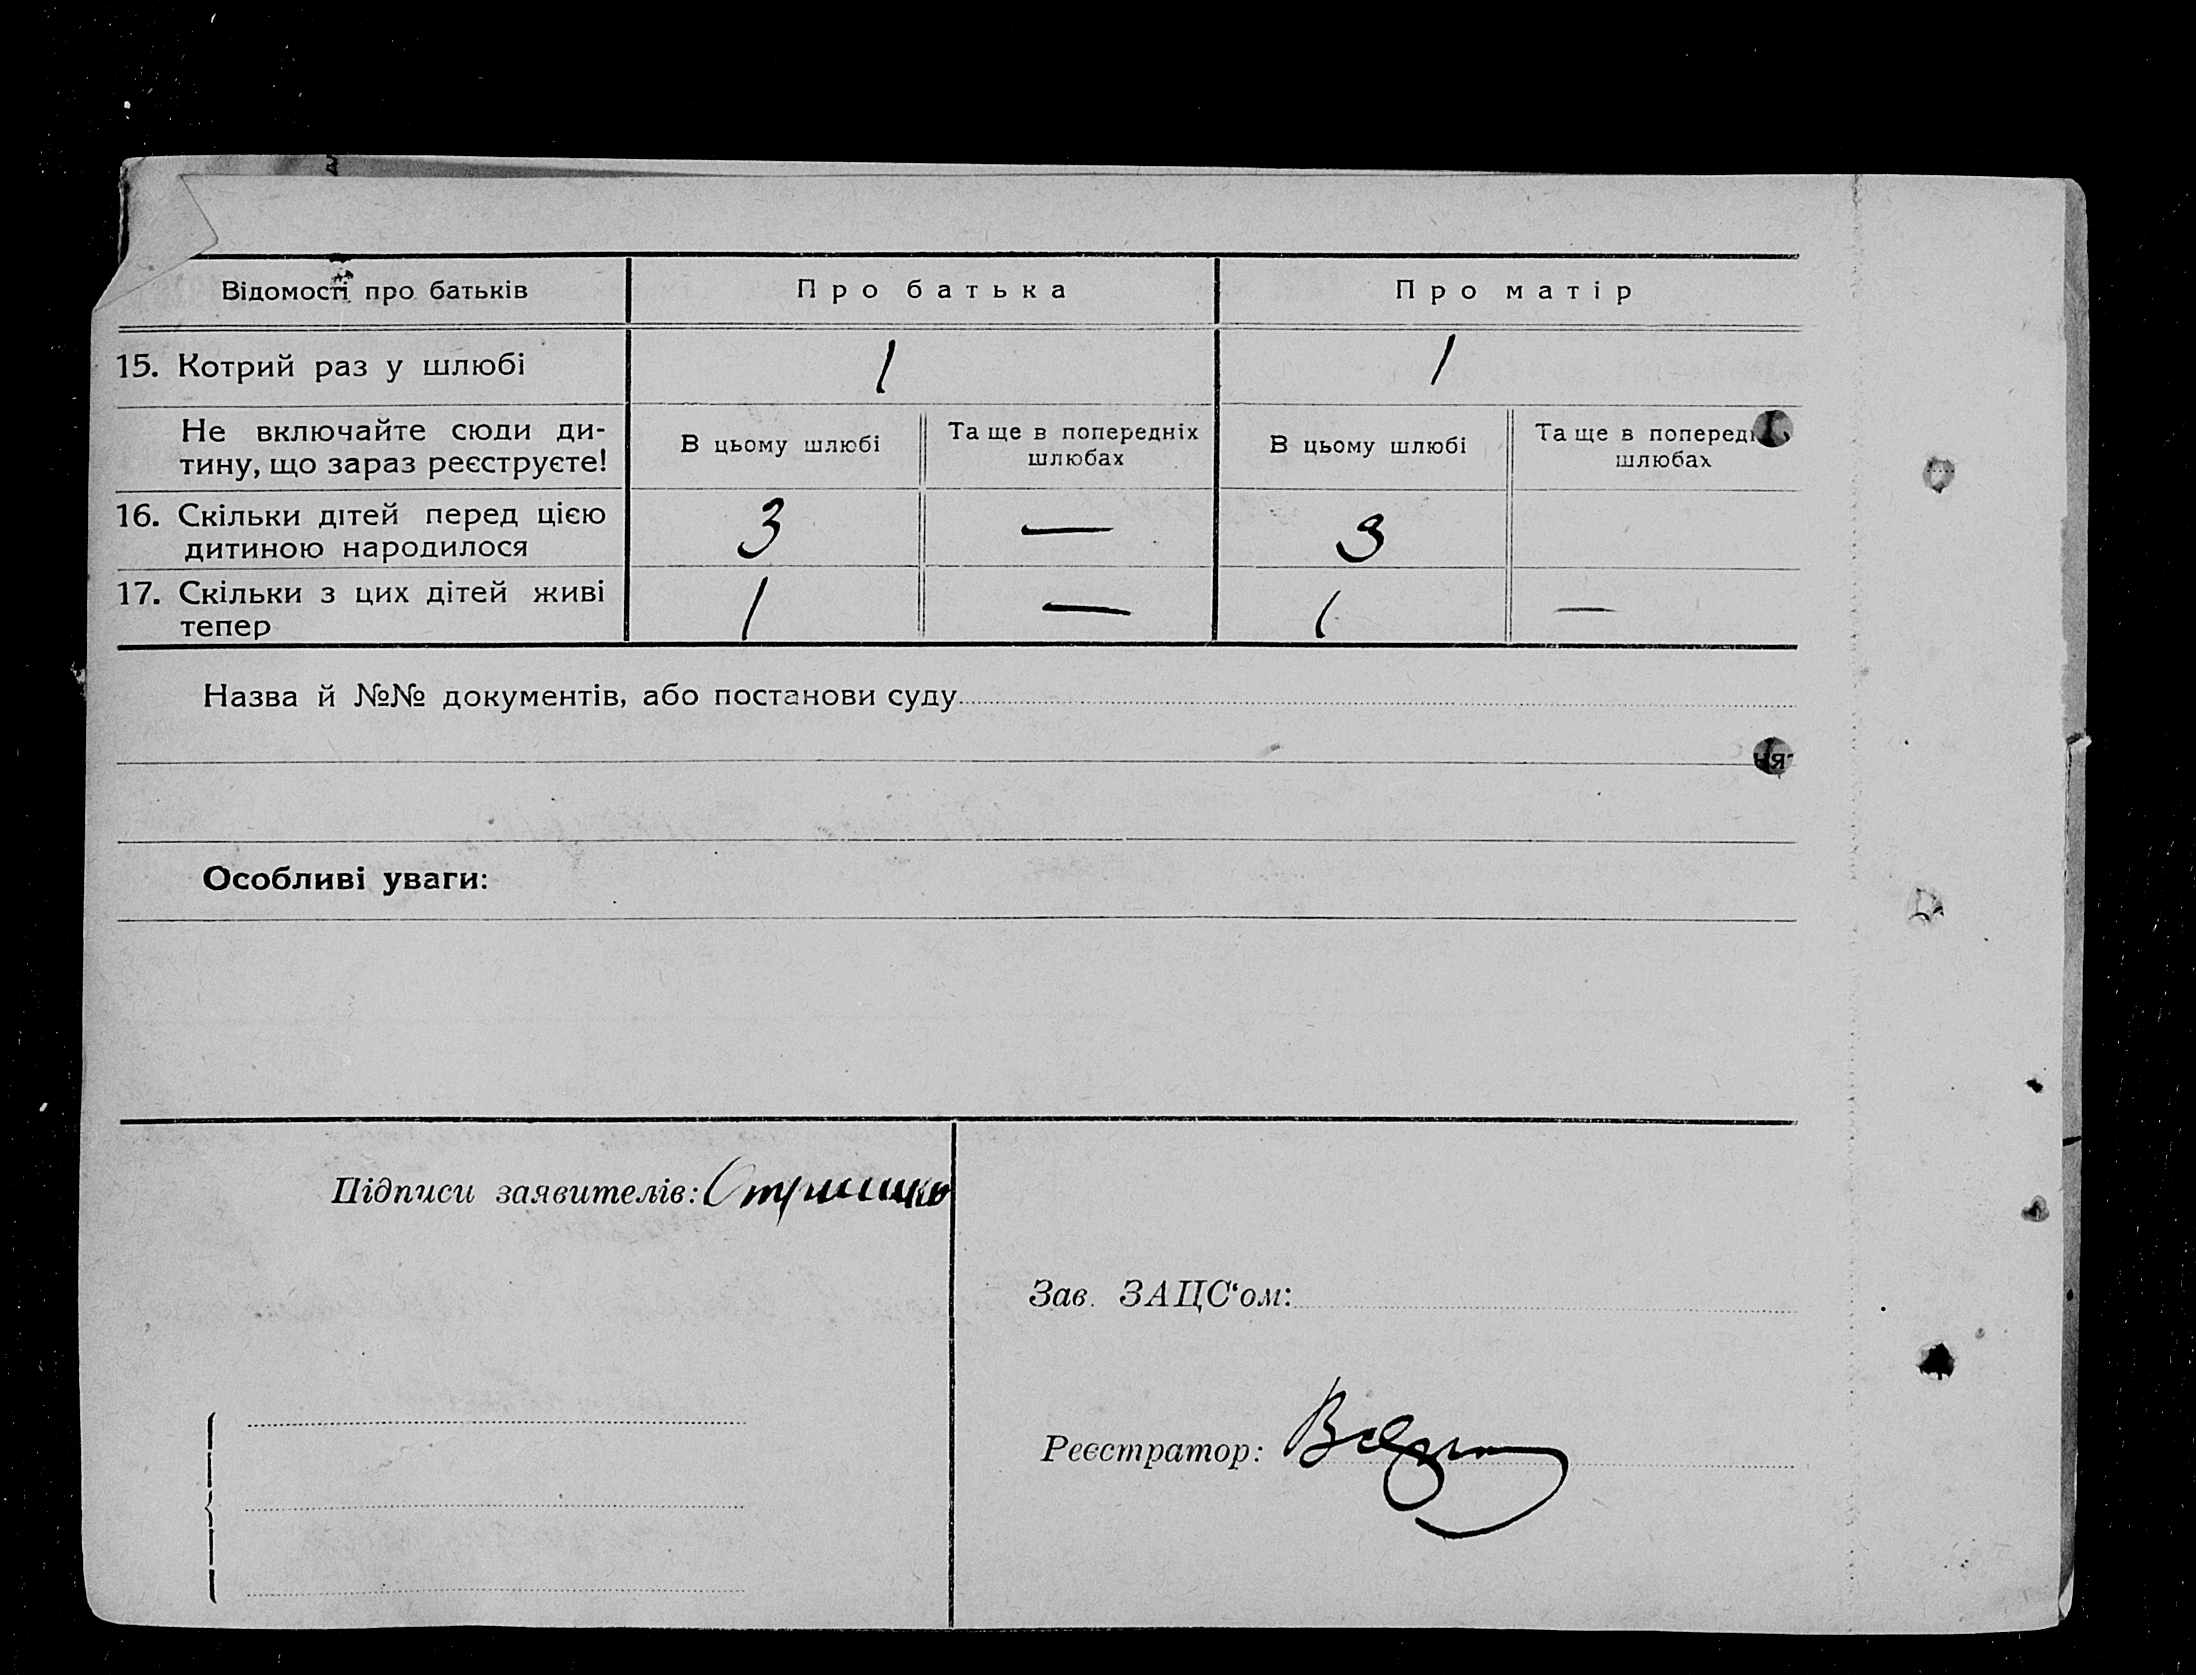 Відомості про батьків Про батька Про матір
15. Котрий раз у шлюбі 1 1
Не включайте сюди ди-
тину, що зараз реєструєте!
В цьому шлюбі Та ще в попередніх шлюбах В цьому шлюбі Та ще в шлюбах
16. Скільки дітей перед цією
дитиною народилося 3 — 3
17. Скільки з цих дітей живі
тепер 1 — 1 —
Назва й №№ документів, або постанови суду
Особливі уваги:
Підписи заявителів:
Зав. ЗАЦС‘ом:
Реєстратор: